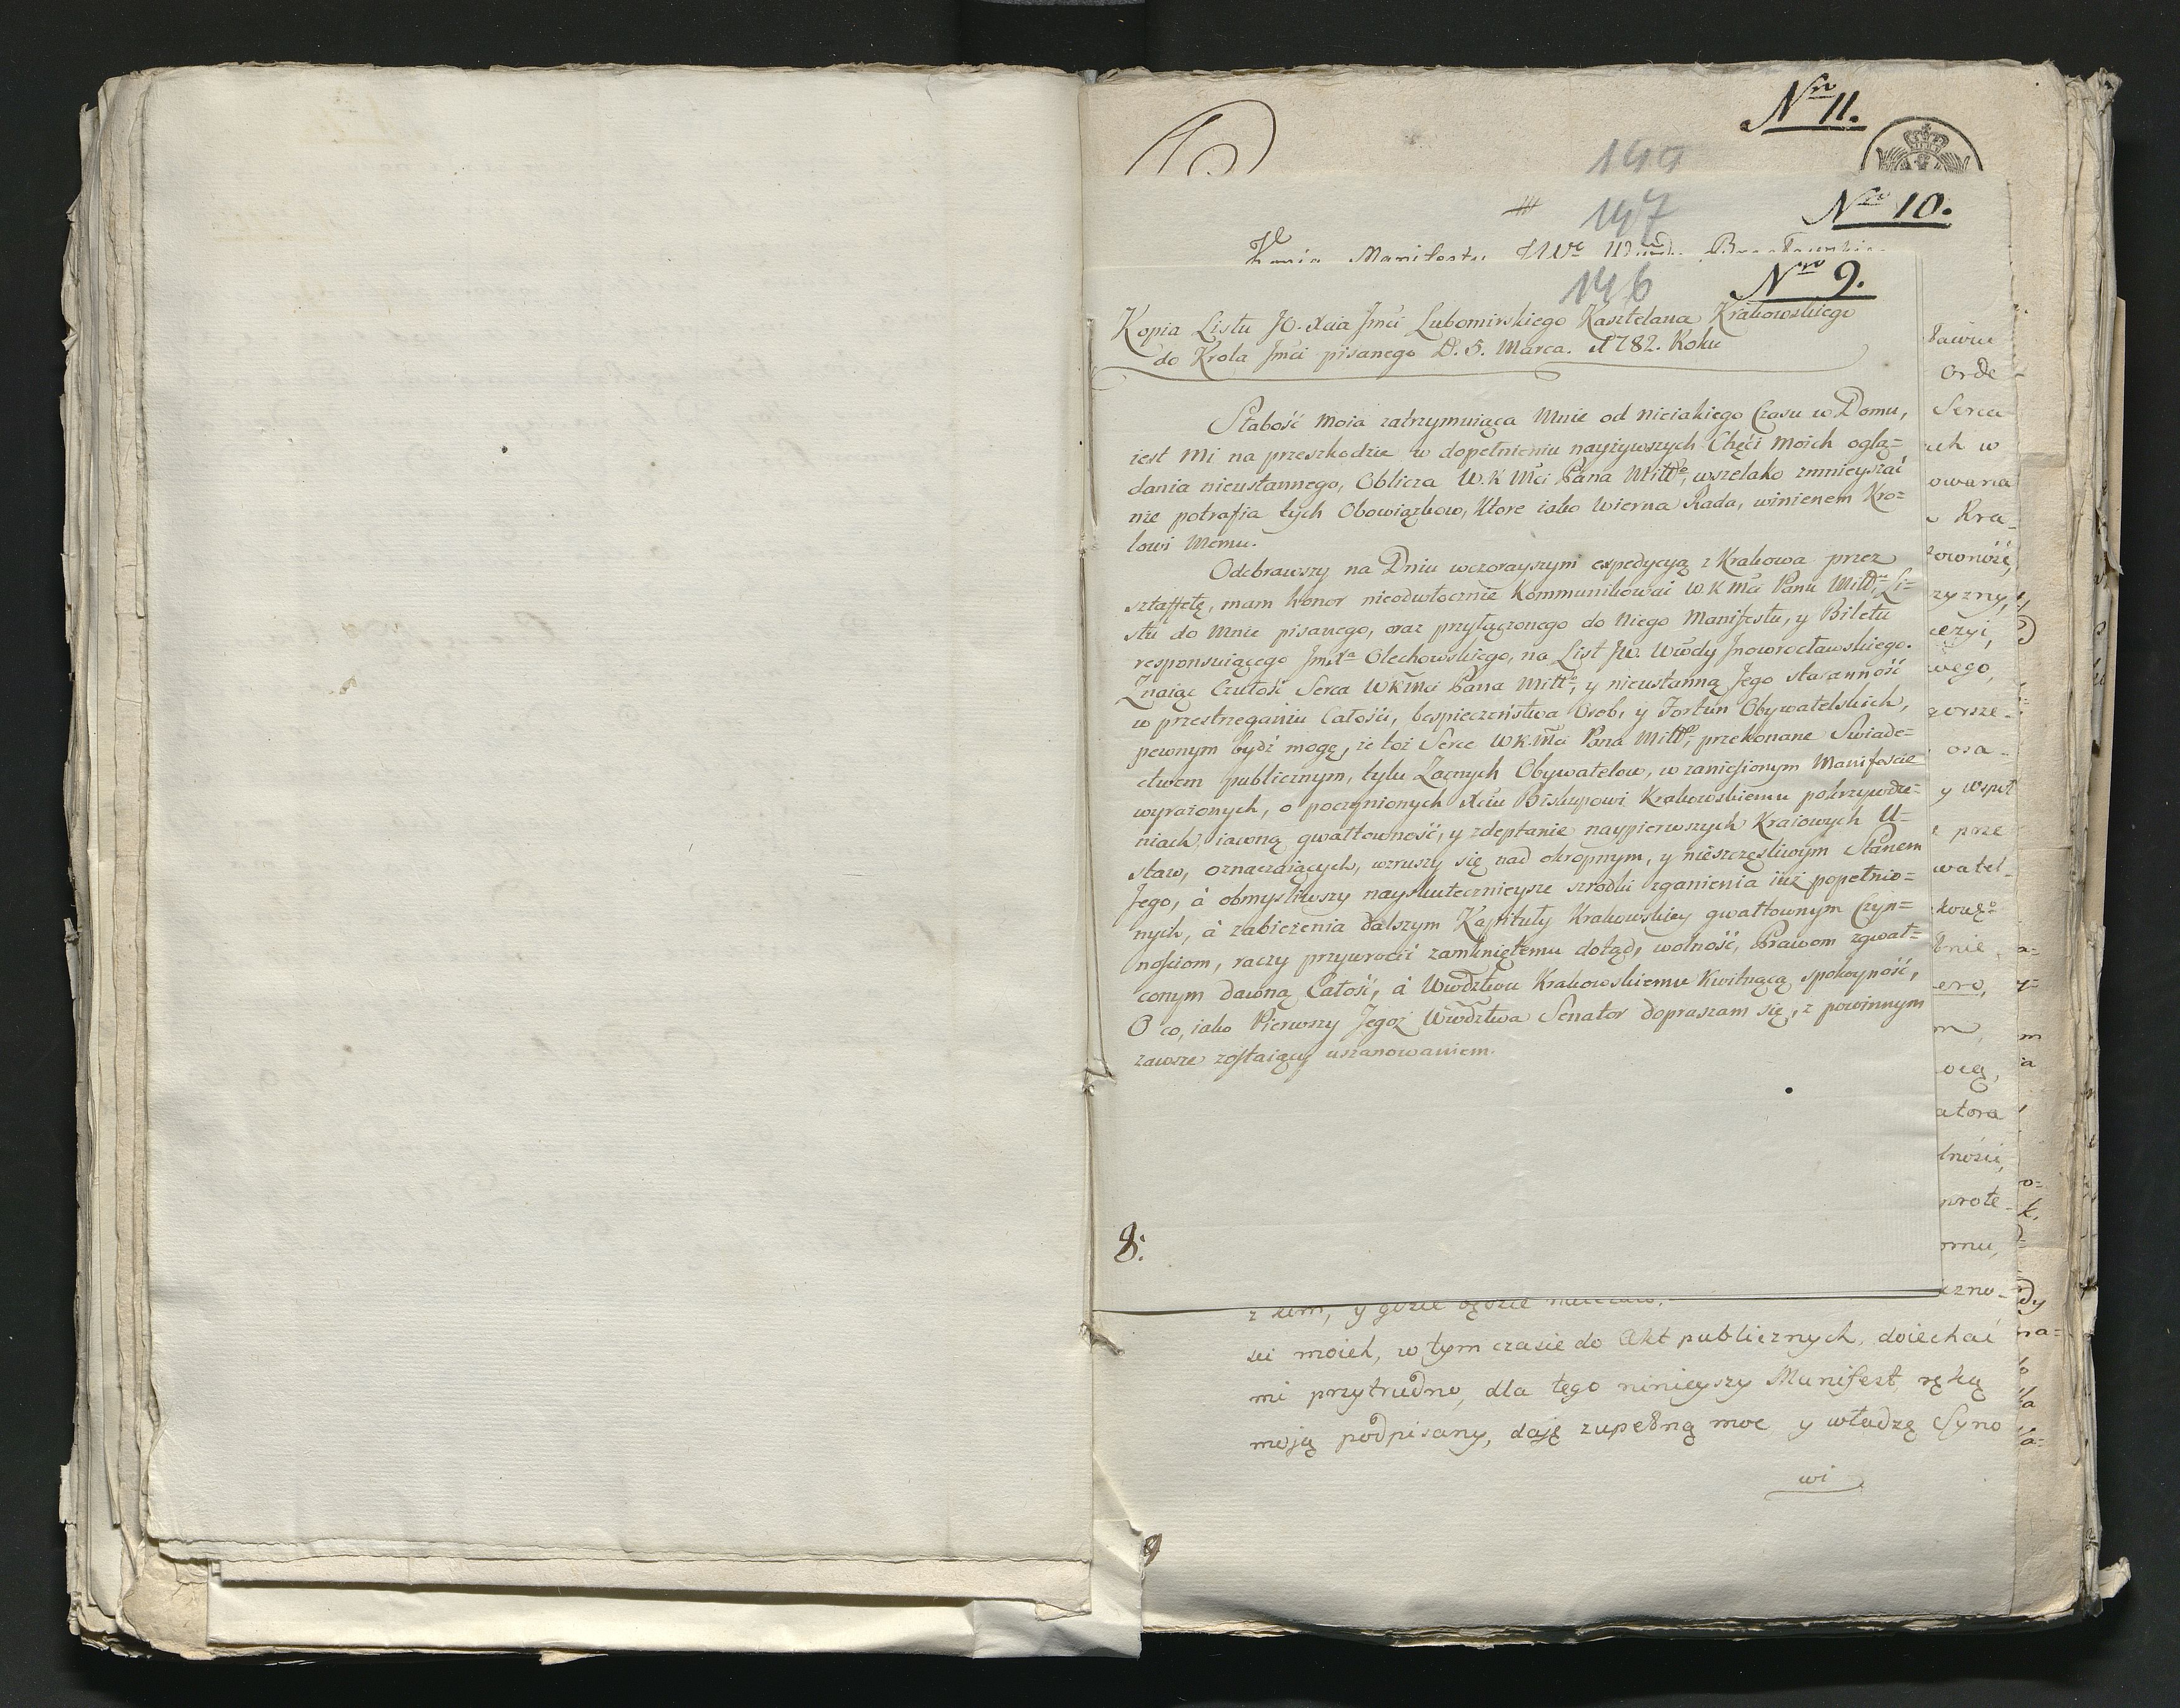 Nro 11.
149
Nro 10.
147
Kopia Manifestu JWo
Nro 9.
146
Kopia Listu JO. Xcia Jmci Lubomirskiego Kasztelana Krakowskiego
do Krola Jmci pisanego D. 5. Marca. 1782. Roku
Słabość moia zatrzymuiąca Mnie od nieiakiego Czasu w Domu,
iest Mi na przeszkodzie w dopełnieniu nayżywszych Chęci moich oglą=
dania nieustannego, Oblicza W.K Mci Pana Miłłgo, wszelako zmnieyszać
nie potrafia tych Obowiązkow, ktore iako wierna Rada, winienem Kro=
lowi Memu.
Odebrawszy na Dniu wczorayszym expedycyą z Krakowa przez
sztaffetę, mam honor nieodwłocznie kommunikować W K Mci Panu Miłłu, Li=
stu do Mnie pisanego, oraz przyłączonego do Niego Manifestu, y Biletu
responsuiącego JmXa Olechowskiego, na List JW. Wwody Jnowrocławskiego.
Znaiąc Czułość Serca WKMci Pana Miłłgo, y nieustanną Jego staranność
w przestrzeganiu Całości, bespieczeństwa Osob, y Fortun Obywatelskich,
pewnym bydź mogę, że toż Serce WK.Mci Pana Miłłgo, przekonane Swiade=
ctwem publicznym, tylu Zacnych Obywatelow, w zaniesionym Manifescie
wyrażonych, o poczynionych Xciu Biskupowi Krakowskiemu pokrzywdze=
niach, iawną gwałtowność, y zdeptanie naypierwszych Kraiowych U=
staw, oznaczaiących, wzruszy się nad okropnym, y nieszczęsliwym Stanem
Jego, à obmysliwszy nayskutecznieysze szrodki zganienia iuż popełnio=
nych, à zabieżenia dalszym Kapituły Krakowskiey gwałtownym Czyn=
nościom, raczy przywrocić zamkniętemu dotąd, wolność, Prawom zgwał=
conym dawną Całość, à Wwdztwu Krakowskiemu kwitnącą spokoyność,
O co, iako Pierwszy Jegoż Wwdztwa Senator dopraszam się, z powinnym
zawsze zostaiący uszanowaniem.
8.
Orde
Serca
uch w
owana
Kra=
zyzny,
wego,
gorsze=
osa=
y wspoł
prze
watel=
ero,
atora
prote=
omu,
czno=
ści moich, w tym czasie do Akt publicznych, doiechać
mi przytrudno, dla tego ninieyszy Manifest ręką
moją podpisany, daję zupełną moc y władzę Syno
wi
9